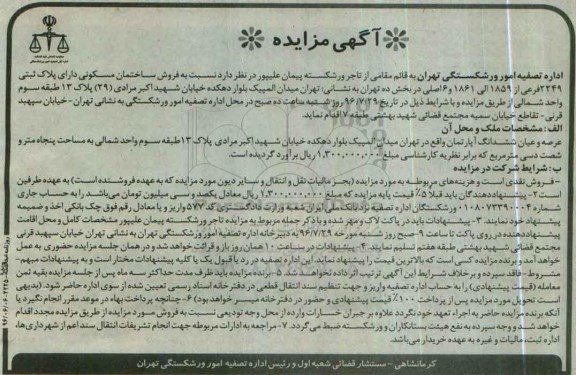 آگهی مزایده
اداره تصفیه امور ورشکستگی تهران به قائم مقامی از تاجر ورشکسته پیمان علیپور در نظر دارد نسبت به فروش ساختمان مسکونی دارای پلاک ثبتی
۲۲۴۹ فرعی از ۱۸۵۹ الی ۱۸۶۱ و ۶ اصلی در بخش ده تهران به نشانی: تهران میدان المپیک بلوار دهکده خیابان شهید اکبر مرادی (۲۹) پلاک ۱۳ طبقه سوم
واحد شمالی از طریق مزایده و با شرایط ذیل در تاریخ ۹۶/۷/۲۹ روز شنبه ساعت ده صبح در محل اداره تصفیه امور ورشکستگی به نشانی تهران - خیابان سپهبد
قرنی - تقاطع خیابان سمیه مجتمع قضائی شهید بهشتی طبقه ۷ اقدام نماید.
الف: مشخصات ملک و محل آن
عرصه و عیان ششدانگ آپارتمان واقع در تهران میدان المپیک بلوار دهکده خیابان شهید اکبر مرادی پلاک ۱۳ طبقه سوم واحد شمالی به مساحت پنجاه متر و
شصت دسی مترمربع که برابر نظریه کارشناسی مبلغ ۱,۳۰۰,۰۰۰,۰۰۰ ریال برآورد گردیده است.
ب: شرایط شرکت در مزایده
- فروش نقدی است و هزینه‌های مربوطه به مورد مزایده (بجز مالیات نقل و انتقال و سایر دیون مورد مزایده که به عهده فروشنده است) به عهده طرفین
است ۲- پیشنهاددهندگان باید قبلا ۵٪ قیمت پایه مزایده که مبلغ ۱,۳۰۰,۰۰۰,۰۰۰ ریال معادل یکصد و سی میلیون تومان می‌باشد را به حساب جاری
شماره ورشکستگان اداره تصفیه نزد بانک ملی ایران شعبه وزارت دادگستری کد ۵۷۷ واریز و یا معادل رقم فوق چک بانکی اخذ و ضمیمه
پیشنهاد خود نمایند. ۳- پیشنهادات باید در پاکت لاک و مهر شده و با ذکر جمله مربوط به مزایده تاجر ورشکسته پیمان علیپور مشخصات کامل و محل اقامت
پیشنهاددهنده در روی پاکت تا ساعت ۹ صبح روز شنبه مورخه ۹۶/۷/۲۹ به دبیرخانه اداره تصفیه امور ورشکستگی به نشانی تهران خیابان سپهبد قرنی
مجتمع قضائی شهید بهشتی طبقه هفتم تسلیم نمایند. ۴- پیشنهادات در ساعت ۱۰ همان روز باز و قرائت خواهد شد و در همان جلسه مزایده حضوری به عمل
خواهد آمد و برنده مزایده کسی است که بالاترین قیمت را پیشنهاد نماید این اداره تصفیه در رد یا قبول یک یا کلیه پیشنهادات مختار است و به پیشنهادات مبهم-
مشروط - فاقد سپرده و برخلاف شرایط این آگهی ترتیب اثر داده نخواهد شد. ۵- برنده مزایده باید ظرف مدت حداکثر سه ماه پس از جلسه مزایده بقیه ثمن
معامله (قیمت پیشنهادی) را به حساب اداره تصفیه واریز و جهت تنظیم سند انتقال قطعی در دفترخانه اسناد رسمی تعیین شده از سوی اداره حاضر شود. (بدیهی
است تحویل مورد مزایده پس از پرداخت ۱۰۰٪ قیمت پیشنهادی و حضور در دفترخانه میسر خواهد بود) ۶- چنانچه پرداخت بهاء در موعد مقرر انجام نگیرد یا
آنکه برنده مزایده حاضر به اجراء تعهد خود نگردد علاوه بر جبران خسارات وارده از محل وجه تودیعی نسبت به فروش مورد مزایده از طریق مزایده مجدد اقدام
خواهد شد و وجه سپرده به نفع هیئت بستانکاران و ورشکسته ضبط می‌گردد. ۷- مراجعه به ادارات مربوطه جهت انجام تشریفات انتقال سند اعم از شهرداری‌ها،
اداره ثبت، مالیات و غیره به عهده خریدار می‌باشد.
کرمانشاهی - مستشار قضائی شعبه اول و رئیس اداره تصفیه امور ورشکستگی تهران